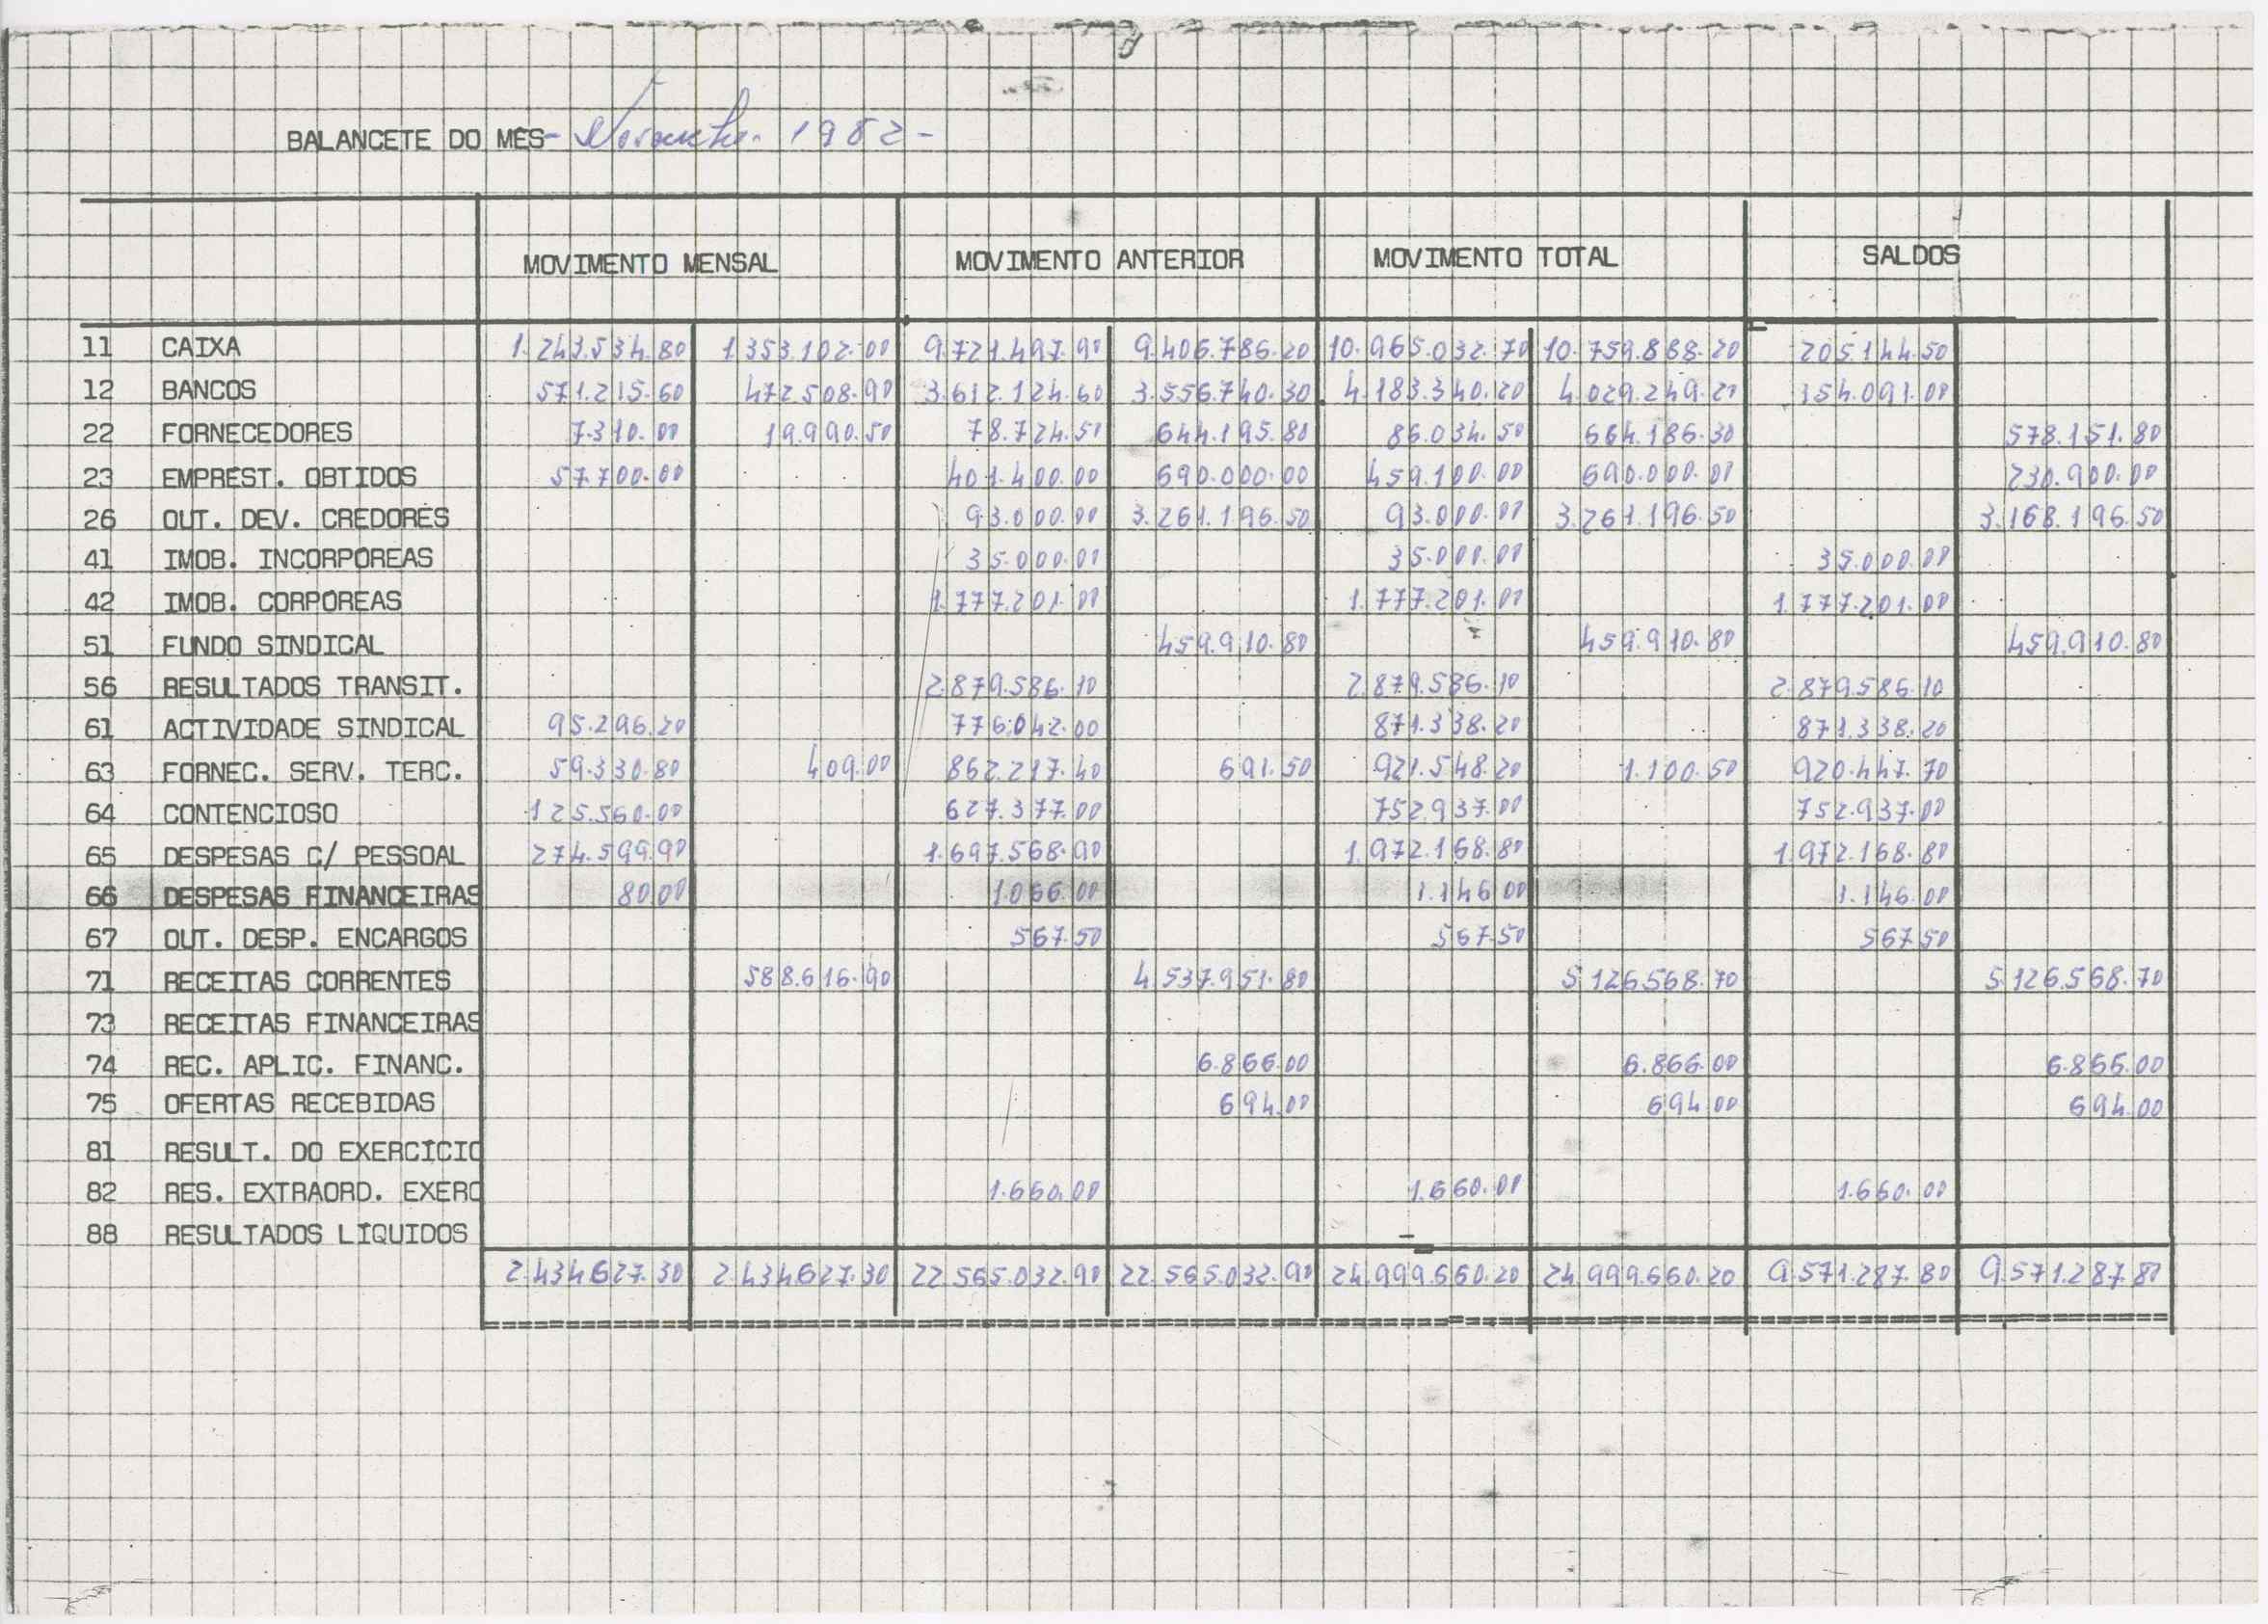 BALANCETE DO MÊS - Novembro 1982 -
MOVIMENTO MENSAL MOVIMENTO ANTERIOR MOVIMENTO TOTAL SALDOS
11 CAIXA 1.243.534.80 1.353.102.00 9.721.497.90 9.406.786.20 10.965.032.70 10.759.888.20 205.144.50
12 BANCOS 571.215.60 472.508.90 3.612.124.60 3.556.740.30 4.183.340.20 4.029.249.20 154.091.00
22 FORNECEDORES 7.310.00 19.990.50 78.724.50 644.195.80 86.034.50 664.186.30 578.151.80
23 EMPRÉST. OBTIDOS 57.700.00 401.400.00 690.000.00 459.100.00 690.000.00 230.900.00
26 OUT. DEV. CREDORES 93.000.00 3.261.196.50 93.000.00 3.261.196.50 3.168.196.50
41 IMOB. INCORPOREAS 35.000.00 35.000.00 35.000.00
42 IMOB. CORPOREAS 1.777.201.00 1.777.201.00 1.777.201.00
51 FUNDO SINDICAL 459.910.80 459.910.80 459.910.80
56 RESULTADOS TRANSIT. 2.879.586.10 2.879.586.10 2.879.586.10
61 ACTIVIDADE SINDICAL 95.296.20 776.042.00 871.338.20 871.338.20
63 FORNEC. SERV. TERC. 59.330.80 409.00 862.217.40 691.50 921.548.20 1.100.50 920.447.70
64 CONTENCIOSO 125.560.00 627.377.00 752.937.00 752.937.00
65 DESPESAS C/ PESSOAL 274.599.90 1.697.568.90 1.972.168.80 1.972.168.80
66 DESPESAS FINANCEIRAS 80.00 1.066.00 1.146.00 1.146.00
67 OUT. DESP. ENCARGOS 567.50 567.50 567.50
71 RECEITAS CORRENTES 588.616.90 4.537.951.80 5.126.568.70 5.126.568.70
73 RECEITAS FINANCEIRAS
74 REC. APLIC. FINANC. 6.866.00 6.866.00 6.866.00
75 OFERTAS RECEBIDAS 694.00 694.00 694.00
81 RESULT. DO EXERCÍCIO
82 RES. EXTRAORD. EXERC 1.660.00 1.660.00 1.660.00
88 RESULTADOS LÍQUIDOS
2.434.627.30 2.434.627.30 22.565.032.90 22.565.032.90 24.999.660.20 24.999.660.20 9.571.287.80 9.571.287.80